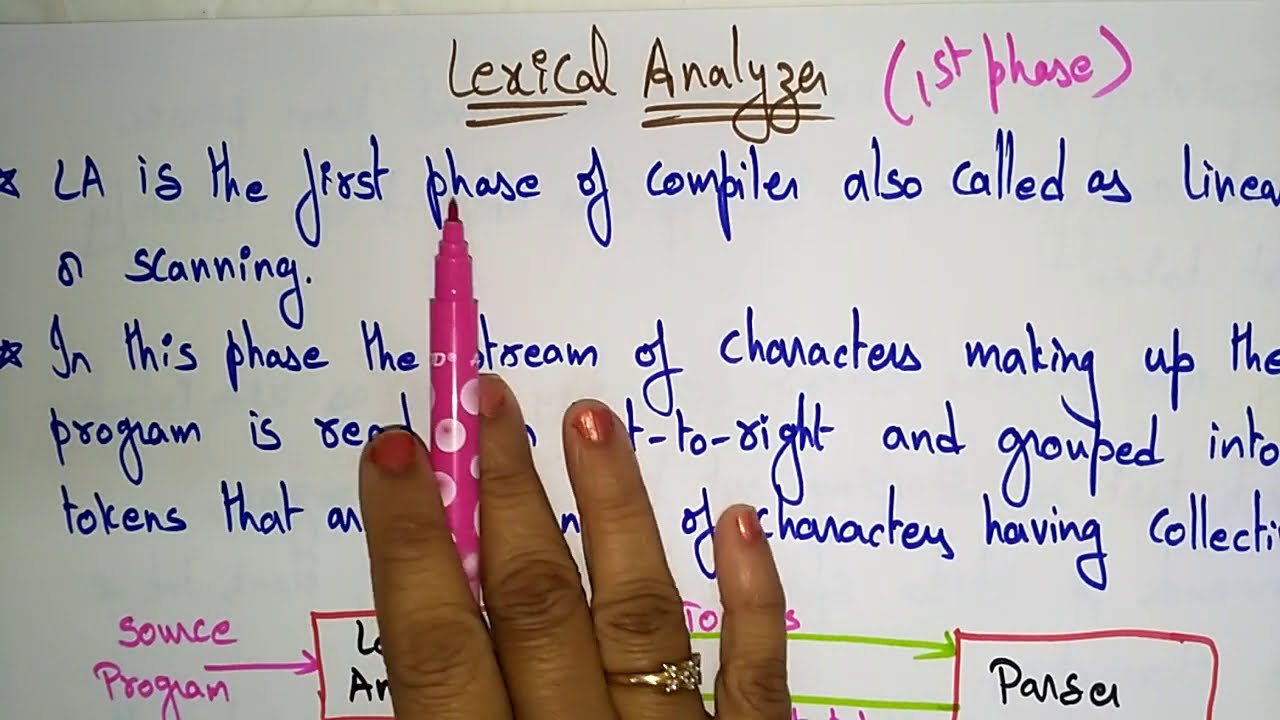 Lexical Analyzer (1st phase)
* LA is the first phase of compiler also called as
or scanning.
* In this phase the stream of characters making up the
program is read to-right and grouped into
tokens that of characters having
Source
Program
Parser